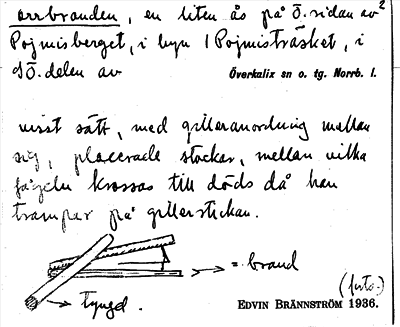 orrbranden, en liten ås på Ö. sidan av 2
Pojmisberget, i byn 1 Pojmisträsket, i
SÖ. delen av Överkalix sn o. tg. Norrb. l.
visst sätt, med gilleranordning mellan
sig, placerade stockar, mellan vilka
fågeln krossas till döds då han
trampar på gillerstickan.
= brand
tyngd.
(forts.)
EDVIN BRÄNNSTRÖM 1936.